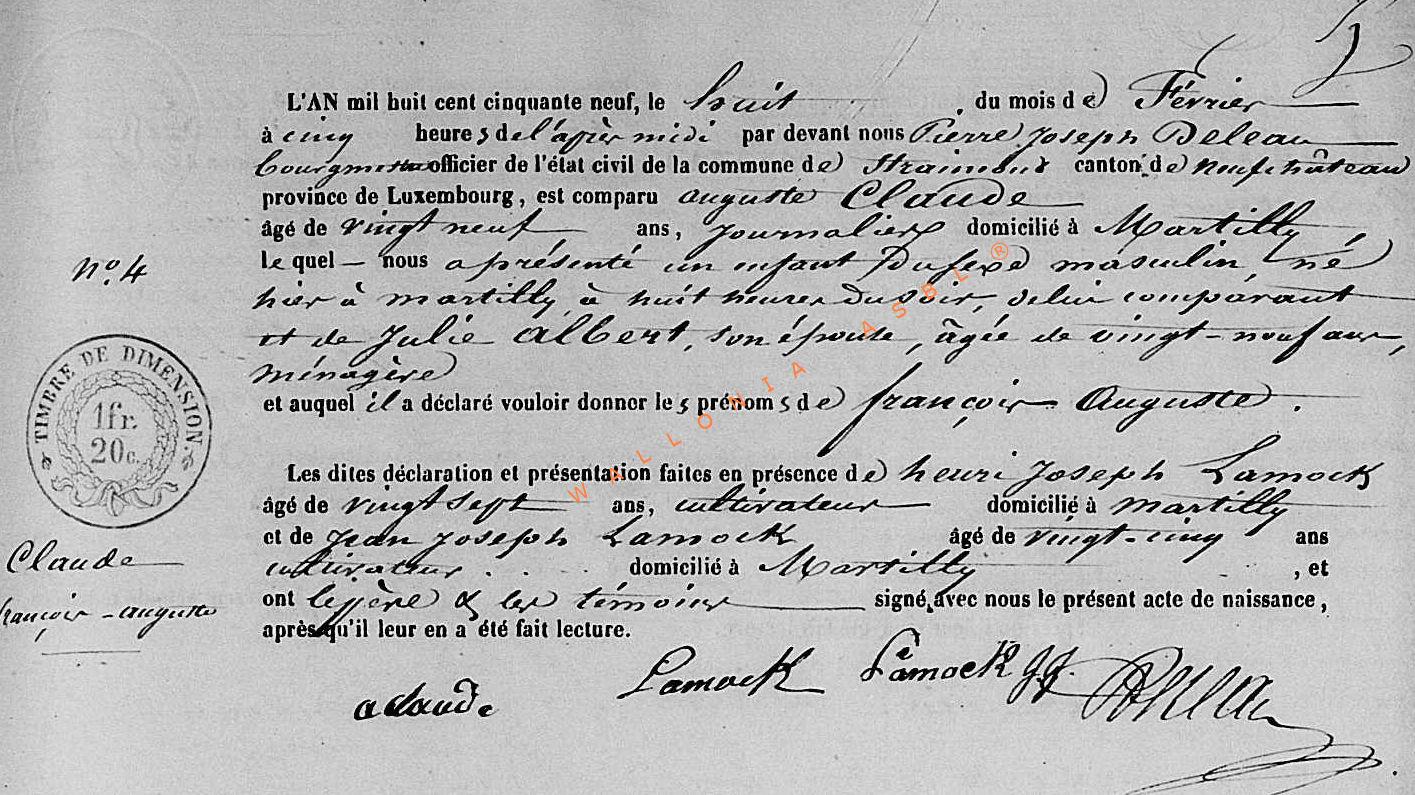 5
L'AN mil huit cent cinquante neuf, le huit du mois de Février
à cinq heures de l'après midi par devant nous Pierre Joseph Deleau
bourgmestre officier de l'état civil de la commune de Straimont canton de neufchâteau
province de Luxembourg, est comparu auguste Claude
âgé de vingt neuf ans, journalier domicilié à Martilly,
lequel nous a présenté un enfant du sexe masculin, né
hier à martilly à huit heures du soir, de lui comparant
et de Julie Albert, son épouse, âgée de vingt-neuf ans,
ménagère
et auquel il a déclaré vouloir donner les prénoms de françois Auguste.
Les dites déclaration et présentation faites en présence de henri joseph Lamock
âgé de vingt sept ans, cultivateur domicilié à martilly
et de jean joseph Lamock âgé de vingt-cinq ans
cultivateur domicilié à Martilly, et
ont le père & les témoins signé avec nous le présent acte de naissance,
après qu'il leur en a été fait lecture.
a claude Lamock Lamock j.j. Deleau
No. 4
TIMBRE DE DIMENSION.
1fr.
20c.
Claude
françois - auguste
WALLONIA ASBL ®